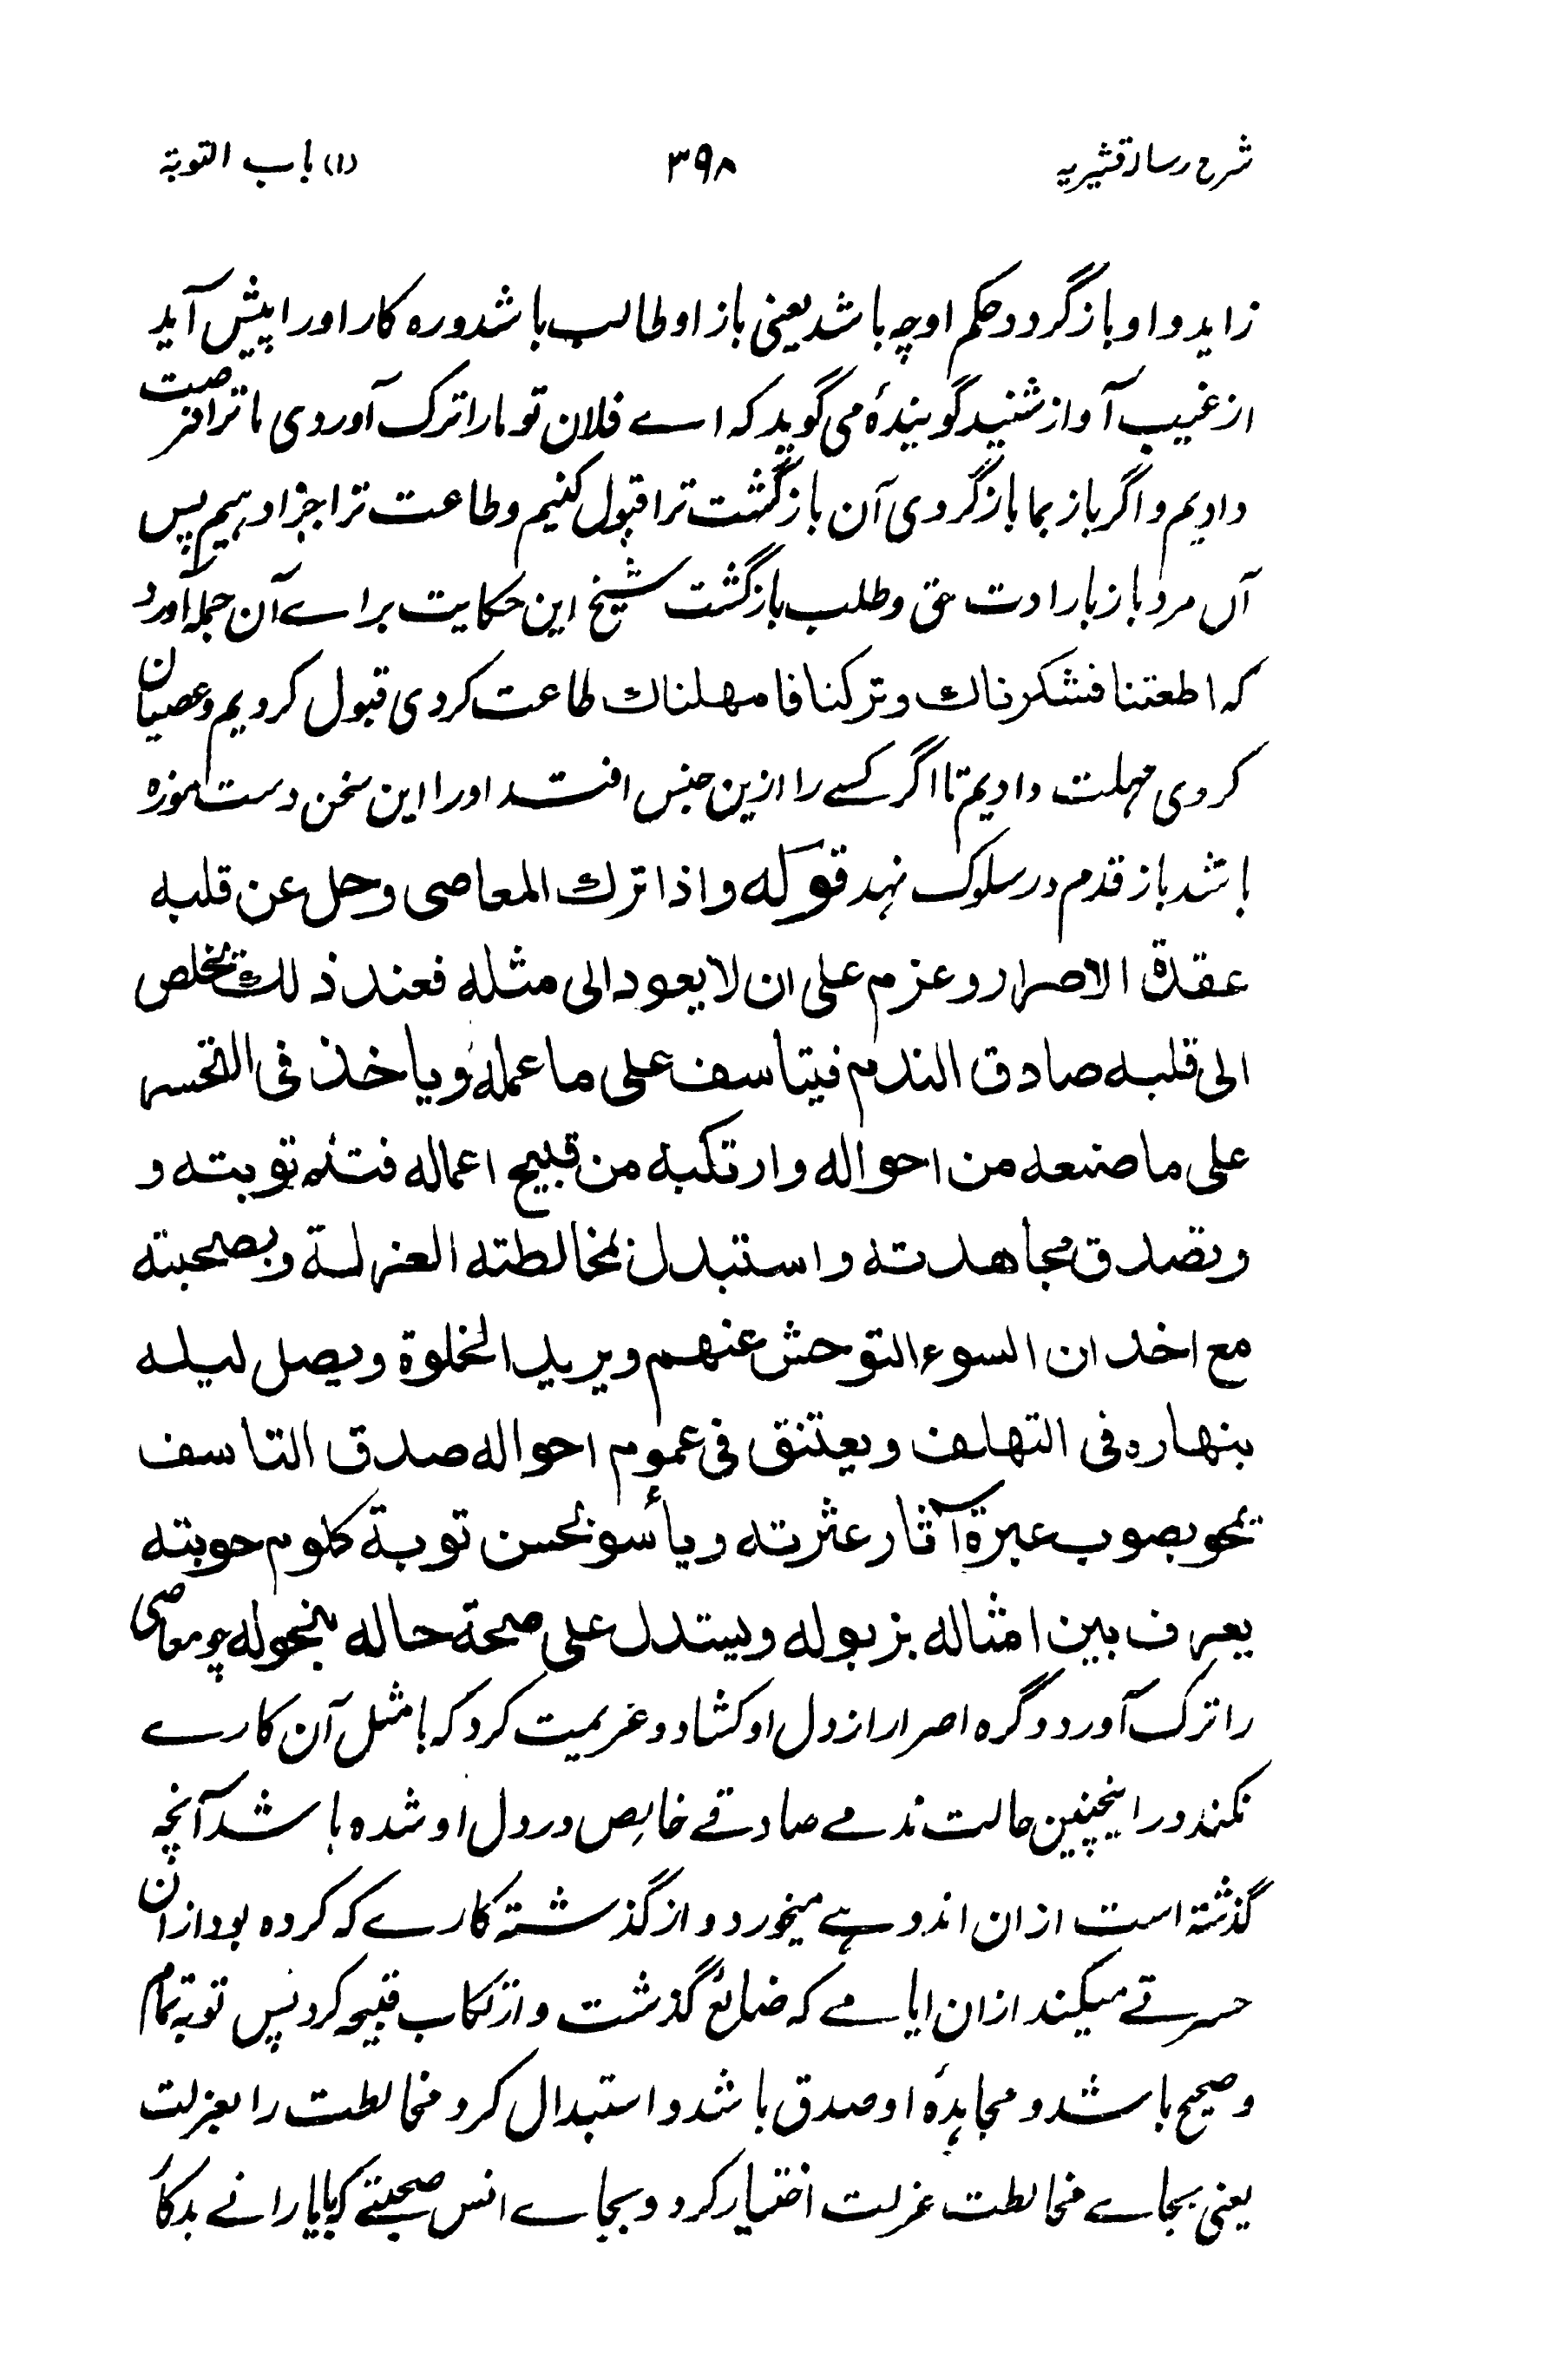 شرح رسالہ قشیریہ ۳۹۸ (۱) باب التوبۃ
زاید و او بازگردد حکم او چہ باشد یعنی باز او طالب باشد و رہ کار او را پیش آید
از غیب آواز شنید گویندۂ می گوید کہ اے فلان تو مارا ترک آوردی ما ترا فرصت
دادیم و اگر باز بما بازگردی آن بازگشت ترا قبول کنیم و طاعت ترا جزا دہیم پس
آں مرد باز بارادت حق و طلب بازگشت شیخ این حکایت براے آن جملہ آورد
کہ اطعتنا فشکرناک وترکتنا فامہلناک طاعت کردی قبول کردیم و عصیان
کردی مہلت دادیم تا اگر کسے را ازین جنس افتد او را این سخن دست موزہ
باشد باز قدم در سلوک نہد قولہ واذا ترک المعاصی وحل عن قلبہ
عقدۃ الاصرار وعزم علی ان لا یعود الی مثلہ فعند ذلک تخلص
الی قلبہ صادق الندم فیتاسف علی ما عملہ ویاخذ فی التحسر
علی ما صنعہ من احوالہ وارتکبہ من قبیح اعمالہ فتتم توبتہ و
وتصدق مجاھدتہ واستبدل بمخالطتہ العزلۃ وبصحبتہ
مع اخدان السوء التوحش عنھم ویرید الخلوۃ ویصل لیلہ
بنھارہ فی التھلف ویعتنق فی عموم احوالہ صدق التاسف
یمحو بصوب عبرۃ آثار عثرتہ ویأسو بحسن توبۃ کلوم حوبتہ
یعرف بین امثالہ بزبولہ ویستدل علی صحۃ حالہ بنحولہ چو معاصی
را ترک آورد و گرہ اصرار از دل او کشاد و عزیمت کرد کہ با مثل آن کارے
نکند در اینچنین حالت ندمے صادقے خالص در دل او شدہ باشد آنچہ
گذشتہ است ازان اندوہے میخورد و از گذشتہ کارے کہ کردہ بود ازان
حسرتے میکند ازان ایامے کہ ضائع گذشت و ارتکاب قبیحہ کرد پس توبہ تمام
و صحیح باشد و مجاہدۂ او صدق باشد و استبدال کرد مخالطت را بعزلت
یعنی بجاے مخالطت عزلت اختیار کرد و بجاے انس صحبتے کہ بایارانے بدکا